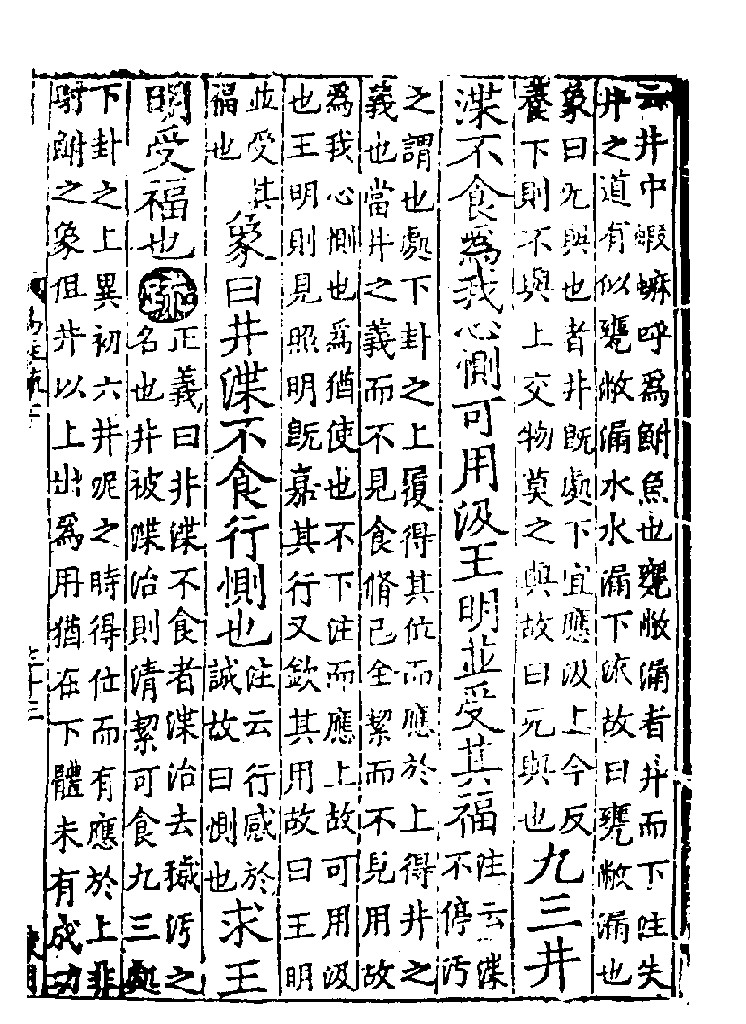 云井中蝦蟆呼爲鮒魚也甕敝漏者井而下注失
井之道有似甕敝漏水水漏下流故曰甕敝漏也
象曰旡與也者井旣處下宜應汲上今反
養下則不與上交物莫之與故曰旡與也
九三井
渫不食爲我心惻可用汲王明並受其福
注云渫
不停污
之謂也處下卦之上履得其位而應於上得井之
義也當井之義而不見食脩己全絜而不見用故
爲我心惻也爲猶使也不下注而應上故可用汲
也王明則見照明旣嘉其行又欽其用故曰王明
並受其
福也
象曰井渫不食行惻也
注云行感於
誠故曰惻也
求王
明受福也
疏
正義曰非渫不食者渫治去穢污之
名也井被渫治則清絜可食九三處
下卦之上異初六井泥之時得位而有應於上非
射鮒之象但井以上出爲用猶在下體未有成功